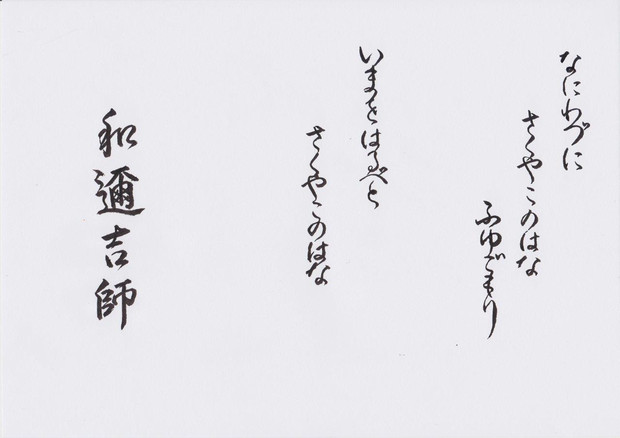 なにわづに
さくやこのはな
ふゆごもり
いまをはるべと
さくやこのはな
和邇吉師